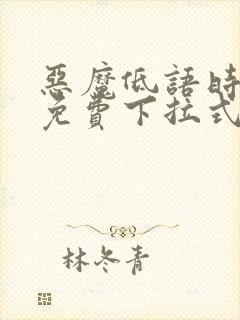 惡魔低語時
免費下拉式
林冬青